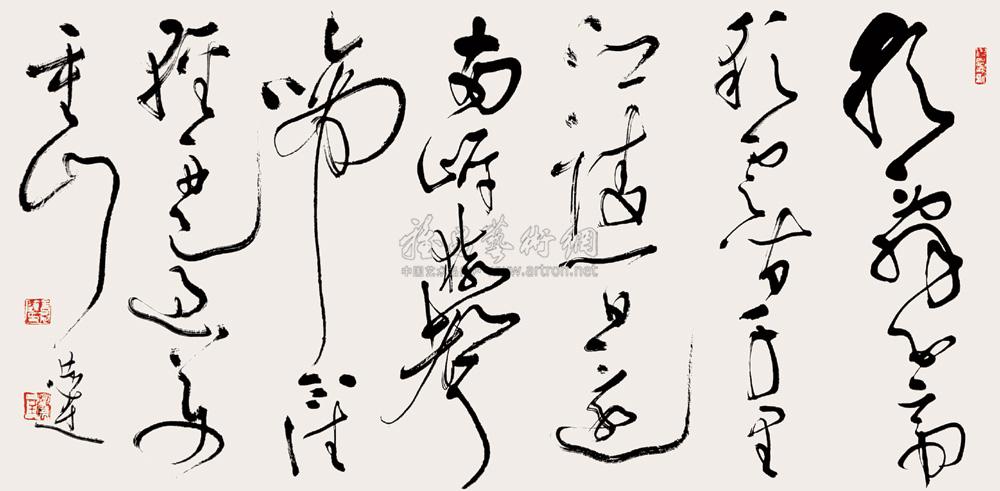 朝辞白帝
彩云间千里
江陵一日还
两岸猿声
啼不住
轻舟已过万
重山
雅昌艺术网
中国艺术品
www.artron.net